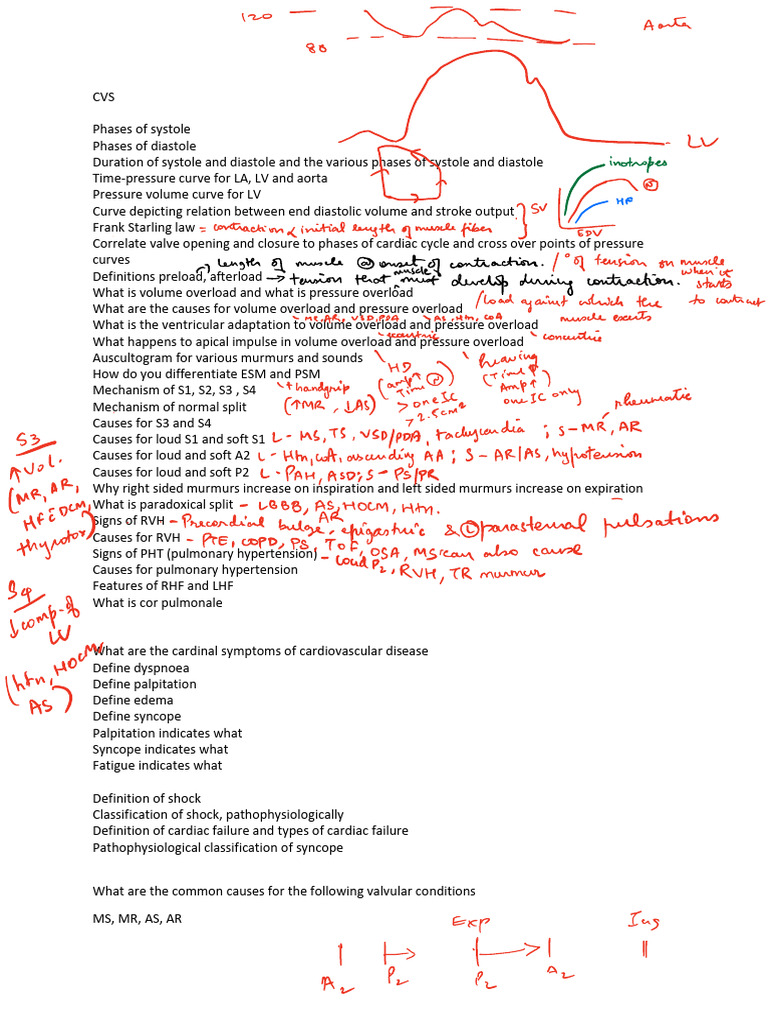 120
Aorta
80
CVS
Phases of systole
Phases of diastole
LV
Duration of systole and diastole and the various phases of systole and diastole
inotropes
Time-pressure curve for LA, LV and aorta
Pressure volume curve for LV
N
HF
Curve depicting relation between end diastolic volume and stroke output
SV
Frank Starling law = contraction ∝ initial length of muscle fiber
EDV
Correlate valve opening and closure to phases of cardiac cycle and cross over points of pressure
curves
length of muscle @ onset of contraction. / ° of tension on muscle
when it starts to contract
Definitions preload, afterload → tension that muscle must develop during contraction.
What is volume overload and what is pressure overload
/ load against which the
muscle exerts
What are the causes for volume overload and pressure overload
MR, AR, VSD, PDA
AS, Htn, CoA
What is the ventricular adaptation to volume overload and pressure overload
eccentric
concentric
What happens to apical impulse in volume overload and pressure overload
Auscultogram for various murmurs and sounds
HD
(amp↑
Time N)
> one IC
> 2.5cm²
heaving
(Time↑
Amp↑)
one IC only
How do you differentiate ESM and PSM
Mechanism of S1, S2, S3 , S4
handgrip
(↑MR, ↓AS)
Mechanism of normal split
Causes for S3 and S4
rheumatic
Causes for loud S1 and soft S1 L - MS, TS, VSD/PDA, tachycardia ; S - MR, AR
Causes for loud and soft A2 L - Htn, coA, ascending AA ; S - AR/AS, hypotension
Causes for loud and soft P2 L - PAH, ASD; S - PS/PR
Why right sided murmurs increase on inspiration and left sided murmurs increase on expiration
What is paradoxical split - LBBB, AS, HOCM, Htn.
AR
Signs of RVH - Precordial bulge, epigastric & L parasternal pulsations
Causes for RVH - PTE, COPD, PS, TOF, OSA, MS can also cause
Signs of PHT (pulmonary hypertension) - loud P2, RVH, TR murmur
Causes for pulmonary hypertension
Features of RHF and LHF
What is cor pulmonale
S3
↑ Vol.
(MR, AR,
HF EDCM,
thyrotox)
S4
↓ comp. of
LV
(htn, HOCM
AS)
What are the cardinal symptoms of cardiovascular disease
Define dyspnoea
Define palpitation
Define edema
Define syncope
Palpitation indicates what
Syncope indicates what
Fatigue indicates what
Definition of shock
Classification of shock, pathophysiologically
Definition of cardiac failure and types of cardiac failure
Pathophysiological classification of syncope
What are the common causes for the following valvular conditions
MS, MR, AS, AR
Exp
Ins
A2 P2 P2 A2